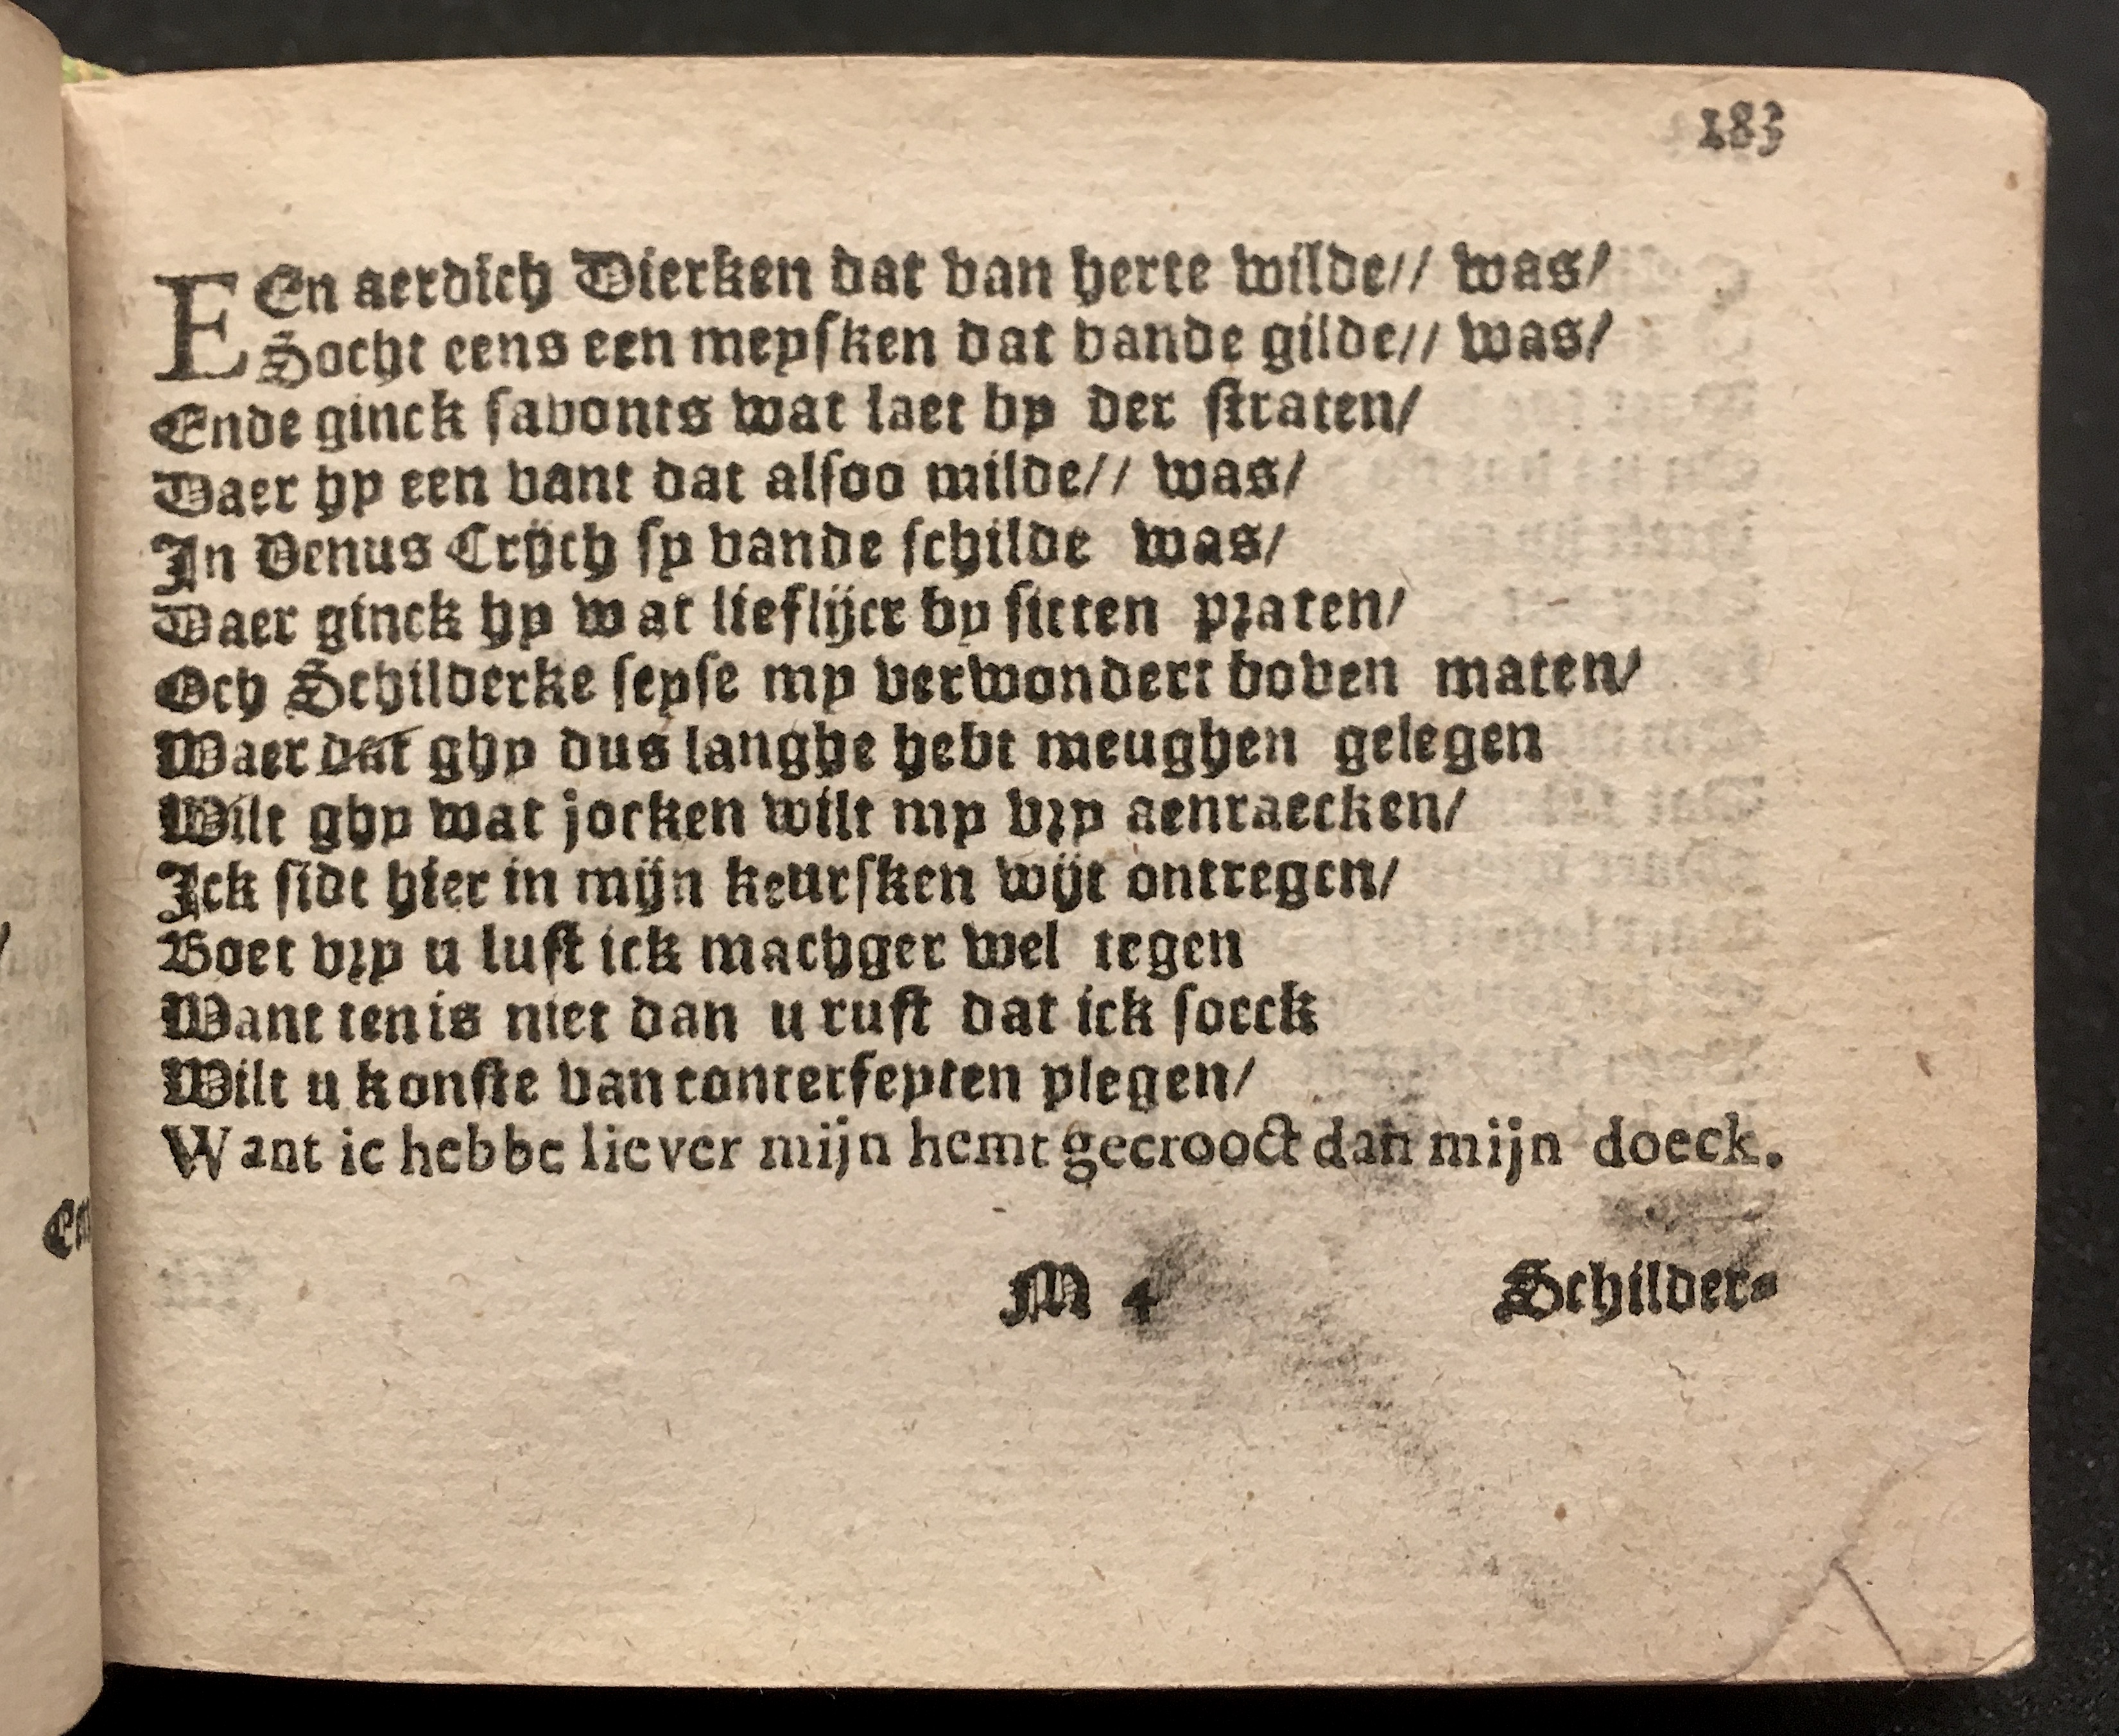 183
EEn aerdich Dierken dat van herte wilde// was/
Socht eens een meysken dat vande gilde// was/
Ende ginck savonts wat laet by der straten/
Daer hy een vant dat alsoo milde// was/
In Venus Crijch sy vande schilde was/
Daer ginck hy wat lieflijct by sitten praten/
Och Schilderke seyse my verwondert boven maten/
Waer dat ghy dus langhe hebt meughen gelegen
Wilt ghy wat jocken wilt my vry aenraecken/
Ick sidt hier in mijn keursken wijt ontregen/
Boet vry u lust ick machger wel tegen
Want ten is niet dan u rust dat ick soeck
Wilt u konste van conterfeyten plegen/
Want ic hebbe liever mijn hemt gecrooct dan mijn doeck.
M 4
Schilder-